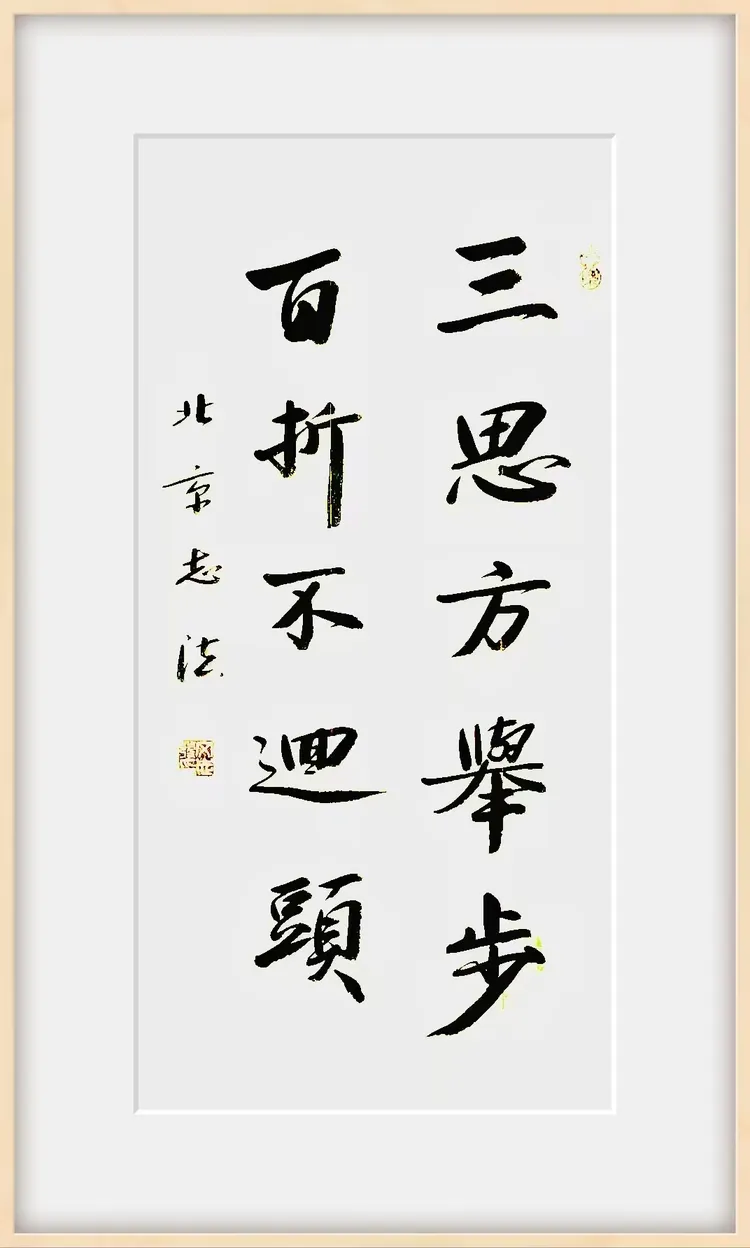 三思方舉步
百折不迴頭
北京志法